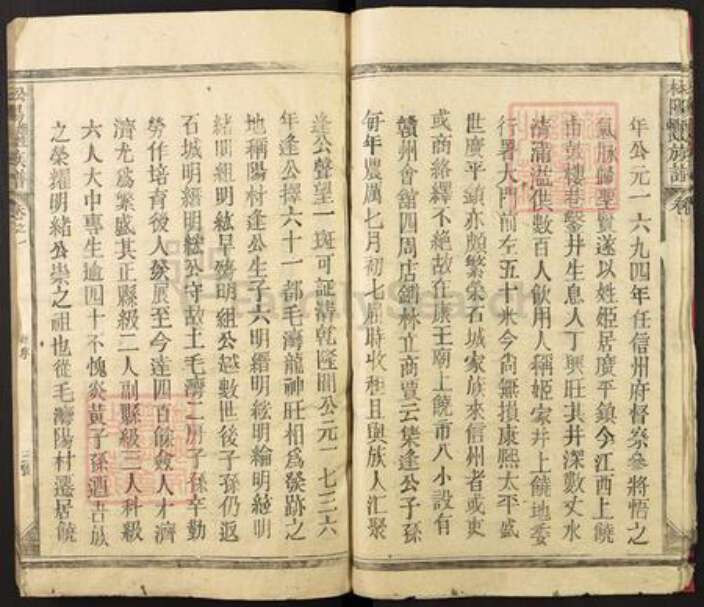 年公元一六九四年任信州府督察參將悟之
氣脉歸聖賢遂以姓姫居廣平鎮今江西上饒
市鼓樓巷鑿井生息人丁興旺其井深數丈水
清浦溢供數百人飲用人稱姫家井上饒地委
行署大門前左五十米今尚無損康熙太平盛
世廣平鎮亦頗繁榮石城家族來信州者或吏
或商絡繹不絕故在康王廟上饒市八小設有
贛州會舘四周店鋪林立商賈云集逢公子孫
每年農厲七月初七屆時收租且與族人汇聚
逢公聲望一斑可証清乾隆間公元一七三六
年逢公擇六十一都毛灣龍神旺相爲發跡之
地稱陽村逢公生子六明縉明綬明綸明組明
緒明組明紘早殤明組公越數世後子孫仍返
石城明縉明紘公守故土毛灣二房子孫辛勤
勞作培育後人發展至今達四百餘僉人才濟
濟尤爲繁盛其正縣級二人副縣級三人科級
六人大中專生逾四十不愧炎黃子孫遒吉族
之榮耀明緒公崇之祖也從毛灣陽村遷居饒
卷之一
FamilySearch